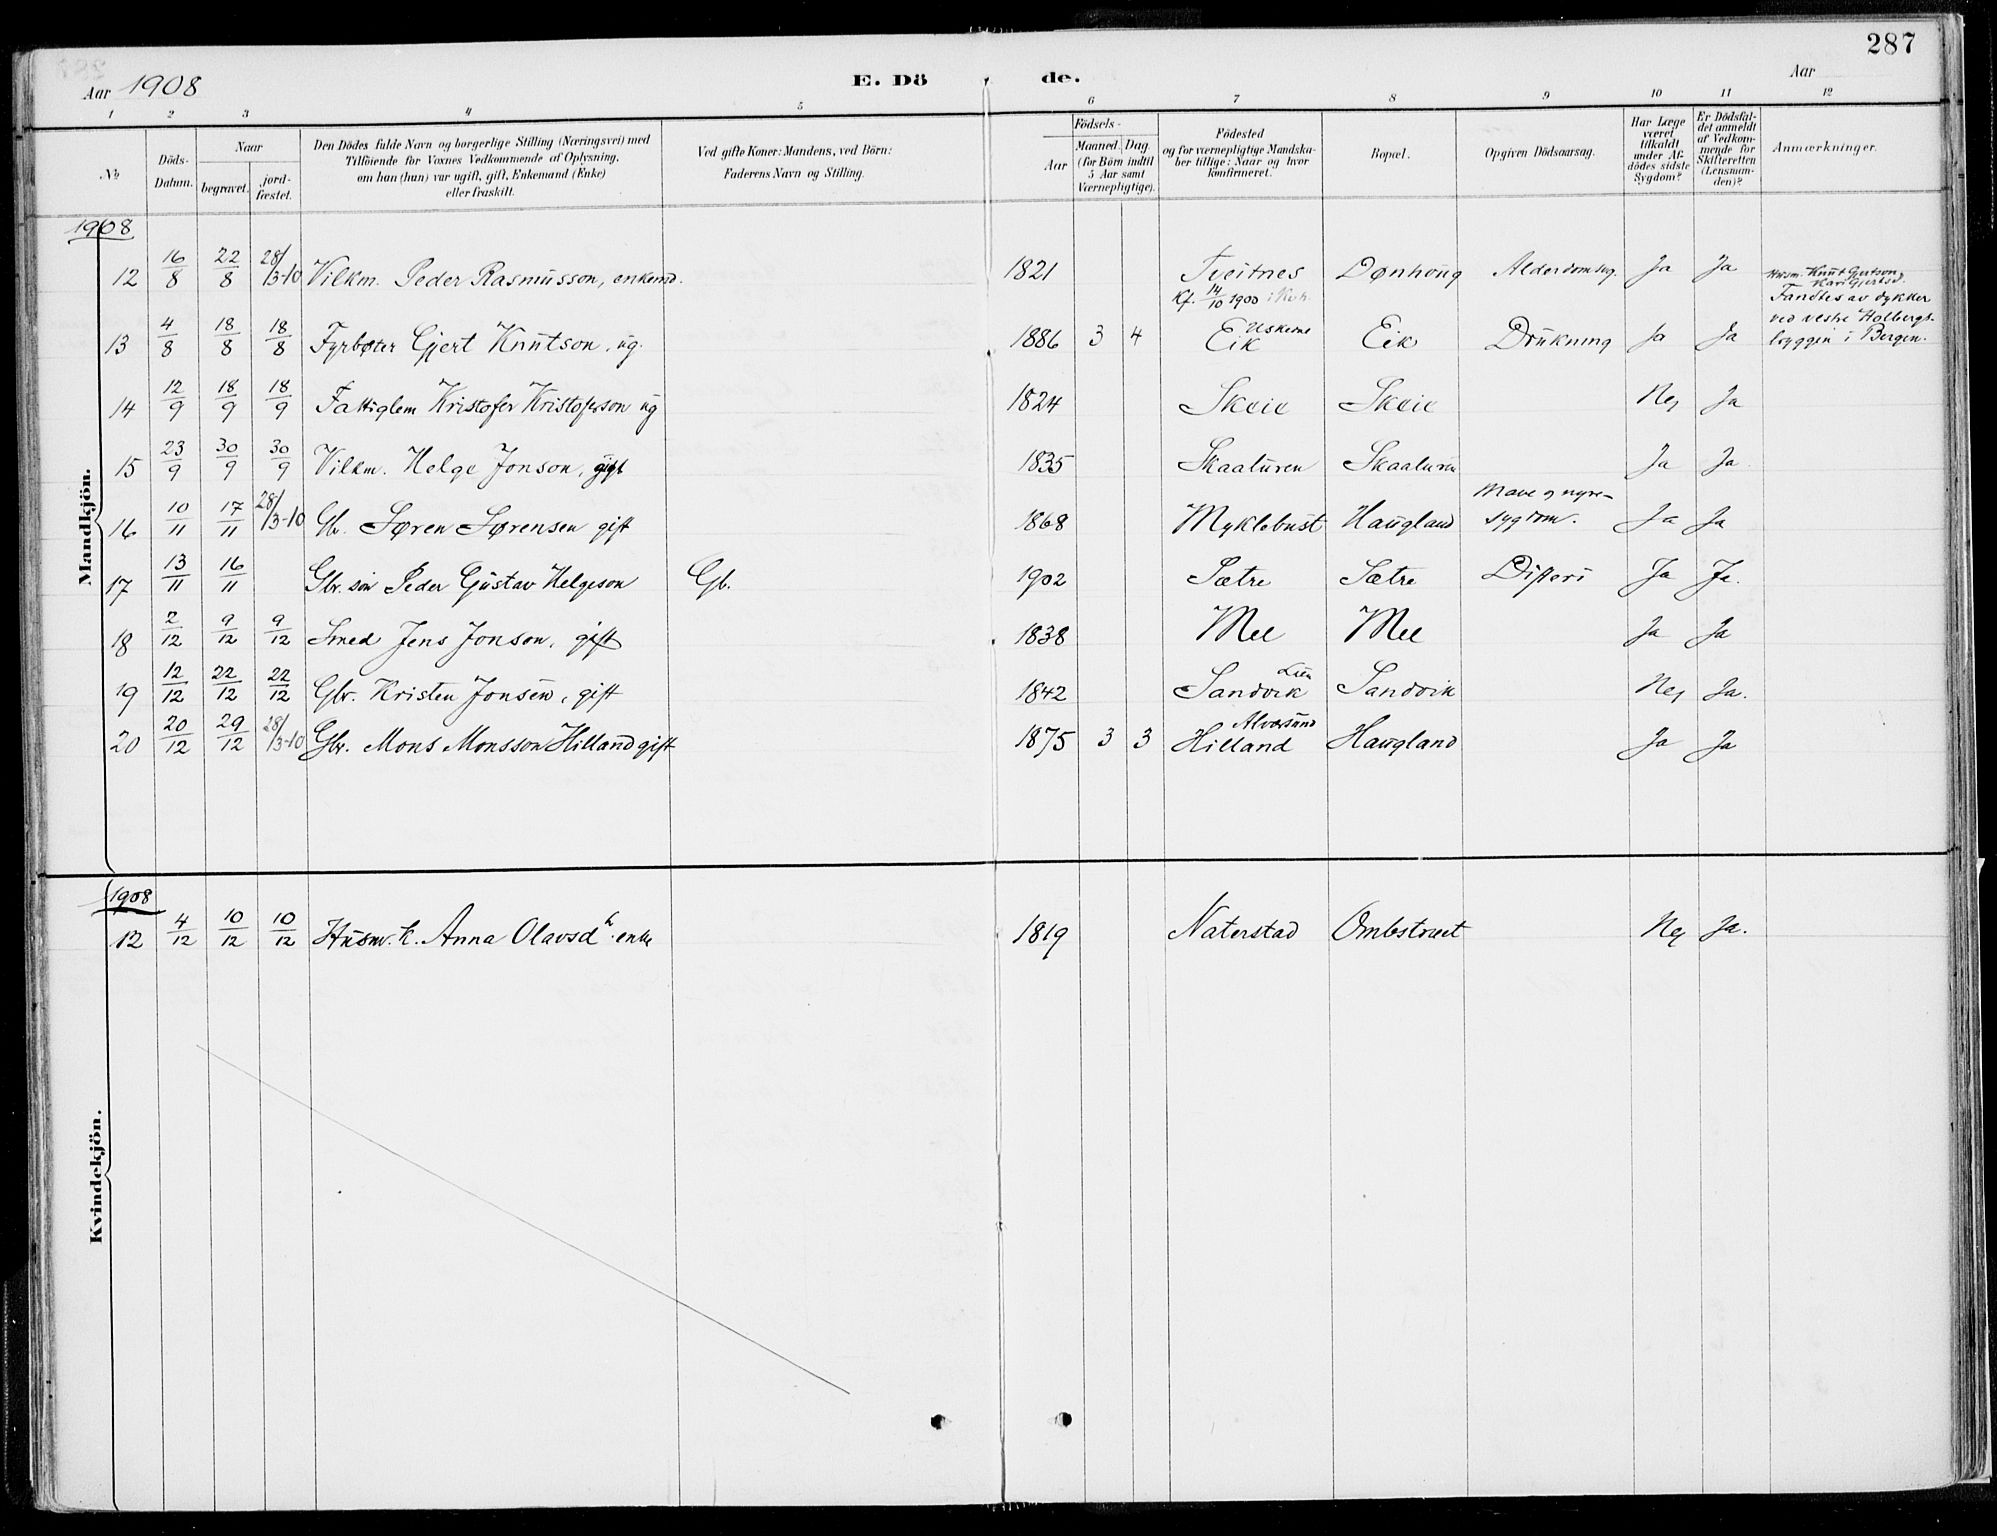 287
Aar 1908
E. Dö de.
Aar
1 2 3 4 5 6 7 8 9 10 11 12
№
Döds-Datum.
Naar
begravet.
jord-fæstet.
Den Dödes fulde Navn og borgerlige Stilling (Næringsvei) med
Tilföiende for Voxnes Vedkommende af Oplysning,
om han (hun) var ugift, gift, Enkemand (Enke)
eller fraskilt.
Ved gifte Koner: Mandens, ved Börn:
Faderens Navn og Stilling.
Födsels-
Aar
Maaned. Dag.
(for Börn indtil
5 Aar samt
Værnepligtige).
Födested
og for værnepligtige Mandska-
ber tillige: Naar og hvor
konfirmeret.
Bopæl.
Opgiven Dödsaarsag.
Har Læge
været
tilkaldt
under Af-
dödes sidste
Sygdom?
Er Dödsfal-
det anmeldt
af Vedkom-
mende for
Skifteretten
(Lensman-
den)?
Anmærkninger.
Mandkjön.
1908
12 16/8 22/8 28/3-10 Vilkm. Peder Rasmusson, enkemd. 1821 Tveitnes Dønhoug Alderdomsvg. Ja Ja
Kf. 14/10 1900 i Kvh.
Husm. Knut Gjertson,
Kari Gjertsd.
Fandtes av dykker
ved vestre Holbergs-
13 4/8 18/8 18/8 Fyrbøter Gjert Knutson, ug. 1886 3 4 Uskeme Eik Eik Drukning Ja Ja bryggen i Bergen.
14 12/9 18/9 18/9 Fattiglem Kristofer Kristoferson ug 1824 Skeie Skeie Nej Ja
15 23/9 30/9 30/9 Vilkm. Helge Jonson, gift 1835 Skaaluren Skaaluren Ja Ja
16 10/11 17/11 28/3-10 Gbr. Søren Sørensen gift 1868 Myklebust Haugland Mave og nyre-
sygdom. Ja Ja
17 13/11 16/11 Gbr. søn Peder Gustav Helgeson Gb. 1902 Sætre Sætre Difteri Ja Ja.
18 2/12 9/12 9/12 Smed Jens Jonson, gift 1838 Mel Mel Ja Ja
19 12/12 22/12 22/12 Gbr. Kristen Jonsen, gift 1842 Sandvik Lien Sandvik Nej Ja.
20 20/12 29/12 28/3-10 Gbr. Mons Monsson Hilland gift 1875 3 3 Alversund Hilland Haugland Ja Ja
Kvindekjön.
1908
12 4/12 10/12 10/12 Husm. k. Anna Olavsdtr. enke 1819 Naterstad Ombstræet Nej Ja.